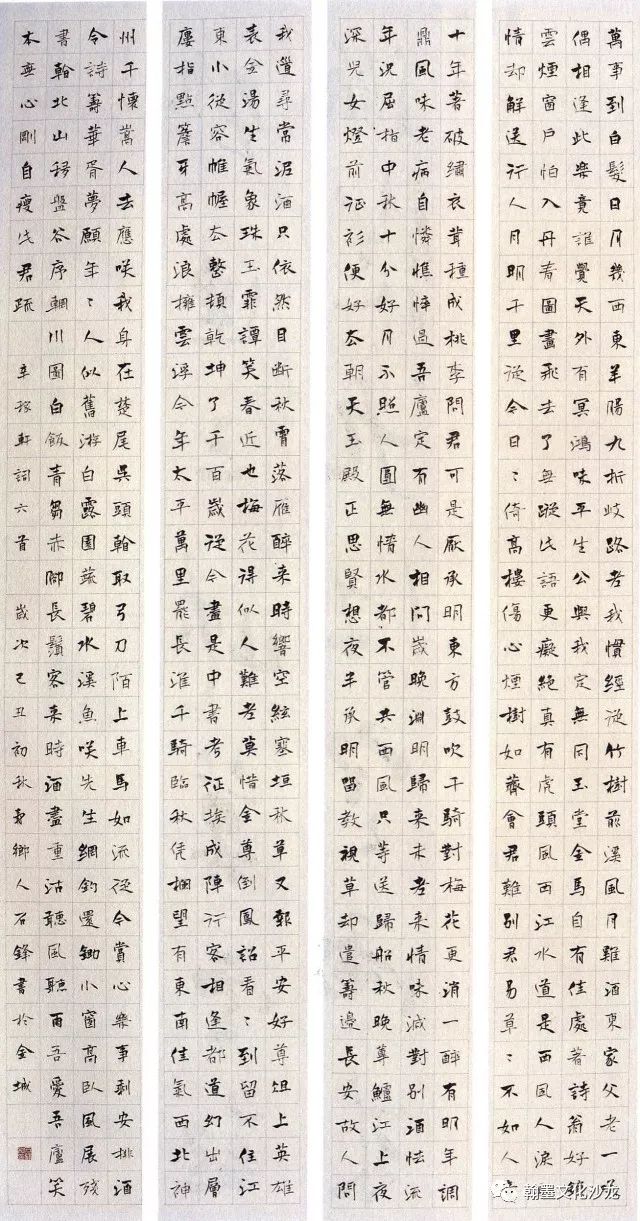 萬事到白髮日月幾西東羊腸九折歧路老我慣經從竹樹前溪風月雞酒東家父老一笑
偶相逢此樂竟誰覺天外有冥鴻味平生公與我定無同玉堂金馬自有佳處著詩翁好鎖
雲煙窗戶怕入丹青圖畫飛去了無蹤此語更癡絕真有虎頭風西江水道是西風人淚
情却解送行人月明千里從今日〻倚高樓傷心煙樹如薺會君難別君易草〻不如人
十年著破繡衣茸種成桃李問君可是厭承明東方鼓吹千騎對梅花更消一醉有明年調
鼎風味老病自憐憔悴過吾廬定有幽人相問歲晚淵明歸來未老來情味減對別酒怯流
年況屈指中秋十分好月不照人圓無情水都不管共西風只等送歸船秋晚蓴鱸江上夜
深兒女燈前征衫便好去朝天玉殿正思賢想夜半承明留教視草却遣籌邊長安故人問
我道尋常泥酒只依然目斷秋霄落雁醉來時響空絃塞垣秋草又報平安好尊俎上英雄
表金湯生氣象珠玉霏譚笑春近也梅花得似人難老莫惜金尊倒鳳詔看〻到留不住江
東小從容帷幄去整頓乾坤了千百歲從今盡是中書考征埃成陣行客相逢都道幻出層
樓指點簷牙高處浪擁雲浮今年太平萬里罷長淮千騎臨秋凭欄望有東南佳氣西北神
州千懷嵩人去應咲我身在楚尾吳頭看取弓刀陌上車馬如流從今賞心樂事剩安排酒
令詩籌華胥夢願年〻人似舊游白露園蔬碧水溪魚咲先生網釣還鋤小窗高臥風展殘
書看北山移盤谷序輞川圖白飯青芻赤脚長鬚客來時酒盡重沽聽風聽雨吾愛吾廬笑
本無心剛自瘦此君疏 辛稼軒詞六首 歲次己丑初秋鄉人石鋒書於金城
翰墨文化沙龙